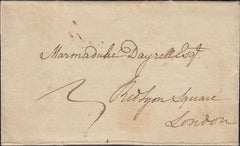 Marmaduke Dayrell Esqr.
Red Lyon Square
London